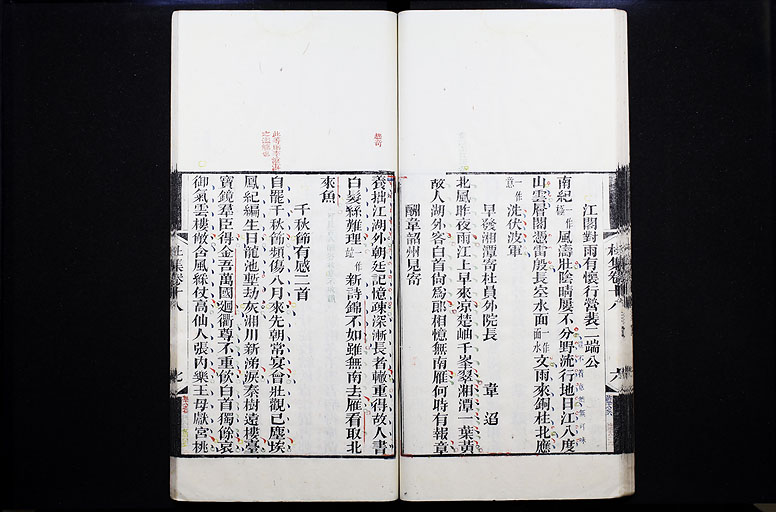 江閣對雨有懷行營裴二端公
南紀一作極風濤壯陰晴屢不分野流行地日江入度
山雲層閣憑雷殷長空水面一作面水文雨來銅柱北應
一作意洗伏波軍
早發湘潭寄杜員外院長 韋迢
北風昨夜雨江上早來涼楚岫千峯翠湘潭一葉黃
故人湖外客白首尚爲郎相憶無南雁何時有報章
酬韋韶州見寄
杜集卷十八
養拙江湖外朝廷記憶疎深慚長者轍重得故人書
白髮絲難理一作新詩錦不如雖無南去雁看取北
來魚
千秋節有感二首
自罷千秋節頻傷八月來先朝常宴會壯觀已塵埃
鳳紀編生日龍池塹劫灰湘川新涕淚秦樹遠樓臺
寶鏡羣臣得金吾萬國迴衢尊不重飲白首獨餘哀
御氣雲樓敞含風綵仗高仙人張內樂王母獻宮桃
杜集卷十八
七